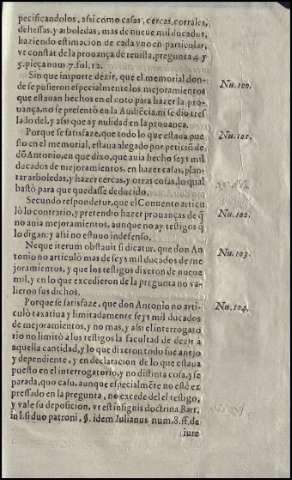 pecificandolos, asi como casas, cercas, corrales,
dehessas, y arboledas, mas de nueue mil ducados,
haziendo estimacion de cada vno en particular,
vt constat de la prouança de reuista, pregunta 4. y
5. pieç. nu. 7. fol. 12.
Sin que importe dezir, que el memorial don-
de se pusieron especialmente los mejoramientos
que estauan hechos en el coto para hazer la pro-
uança, no se presentò en la Audiẽcia, ni se dio tras-
lado del, y asi que ay nulidad en la prouança.
Nu. 100.
Porque se satisfaze, que todo lo que estaua pue-
sto en el memorial, estaua alegado por peticiõ de
dõ Antonio, en que dixo, que auia hecho seys mil
ducados de mejoramientos, en hazer casas, plan-
tar arboledas, y hazer cercas y otras cosas, lo qual
bastò para que quedasse deducido.
Nu. 101.
Secundo respondetur, que el Conuento articu-
lò lo contrario, y pretendio hazer prouanças de q̃
no auia mejoramientos, aunque no ay testigos q̃
lo digan: y asi no estuuo indefenso.
Nu. 102.
Neque iterum obstauit si dicatur, que don An-
tonio no articulò mas de seys mil ducados de me-
joramientos, y que los testigos dizeron de nueue
mil, y en lo que excedieron de la pregunta no va-
lieron sus dichos.
Nu. 103.
Porque se satisfaze, que don Antonio no arti-
culò taxatiua y limitadamente seys mil ducados
de mejoramientos, y no mas, y asi el interrogato
rio no limitò a los testigos la facultad de dezir à
aquella cantidad, y lo que dixeron todo fue anejo
y dependiente, y en declaracion de lo que estaua
puesto en el interrogatorio, y no distinta cosa, y se
parada, quo casu, aunque especialmẽte no estè ex
pressado en la pregunta, no excede del el testigo,
y vale su deposicion, vt est insignis doctrina Bart.
in l. si duo patroni, §. idem Iulianus num. 8. ff. de
iure
Nu. 104.